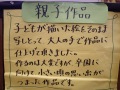 親子作品
子どもが描いた絵をそのまま
写しとって 大人の手で作品に
仕上げて頂きました。
作品は大変ですが、卒園に
向けて 小さい頃の思い出が
つまった作品です。